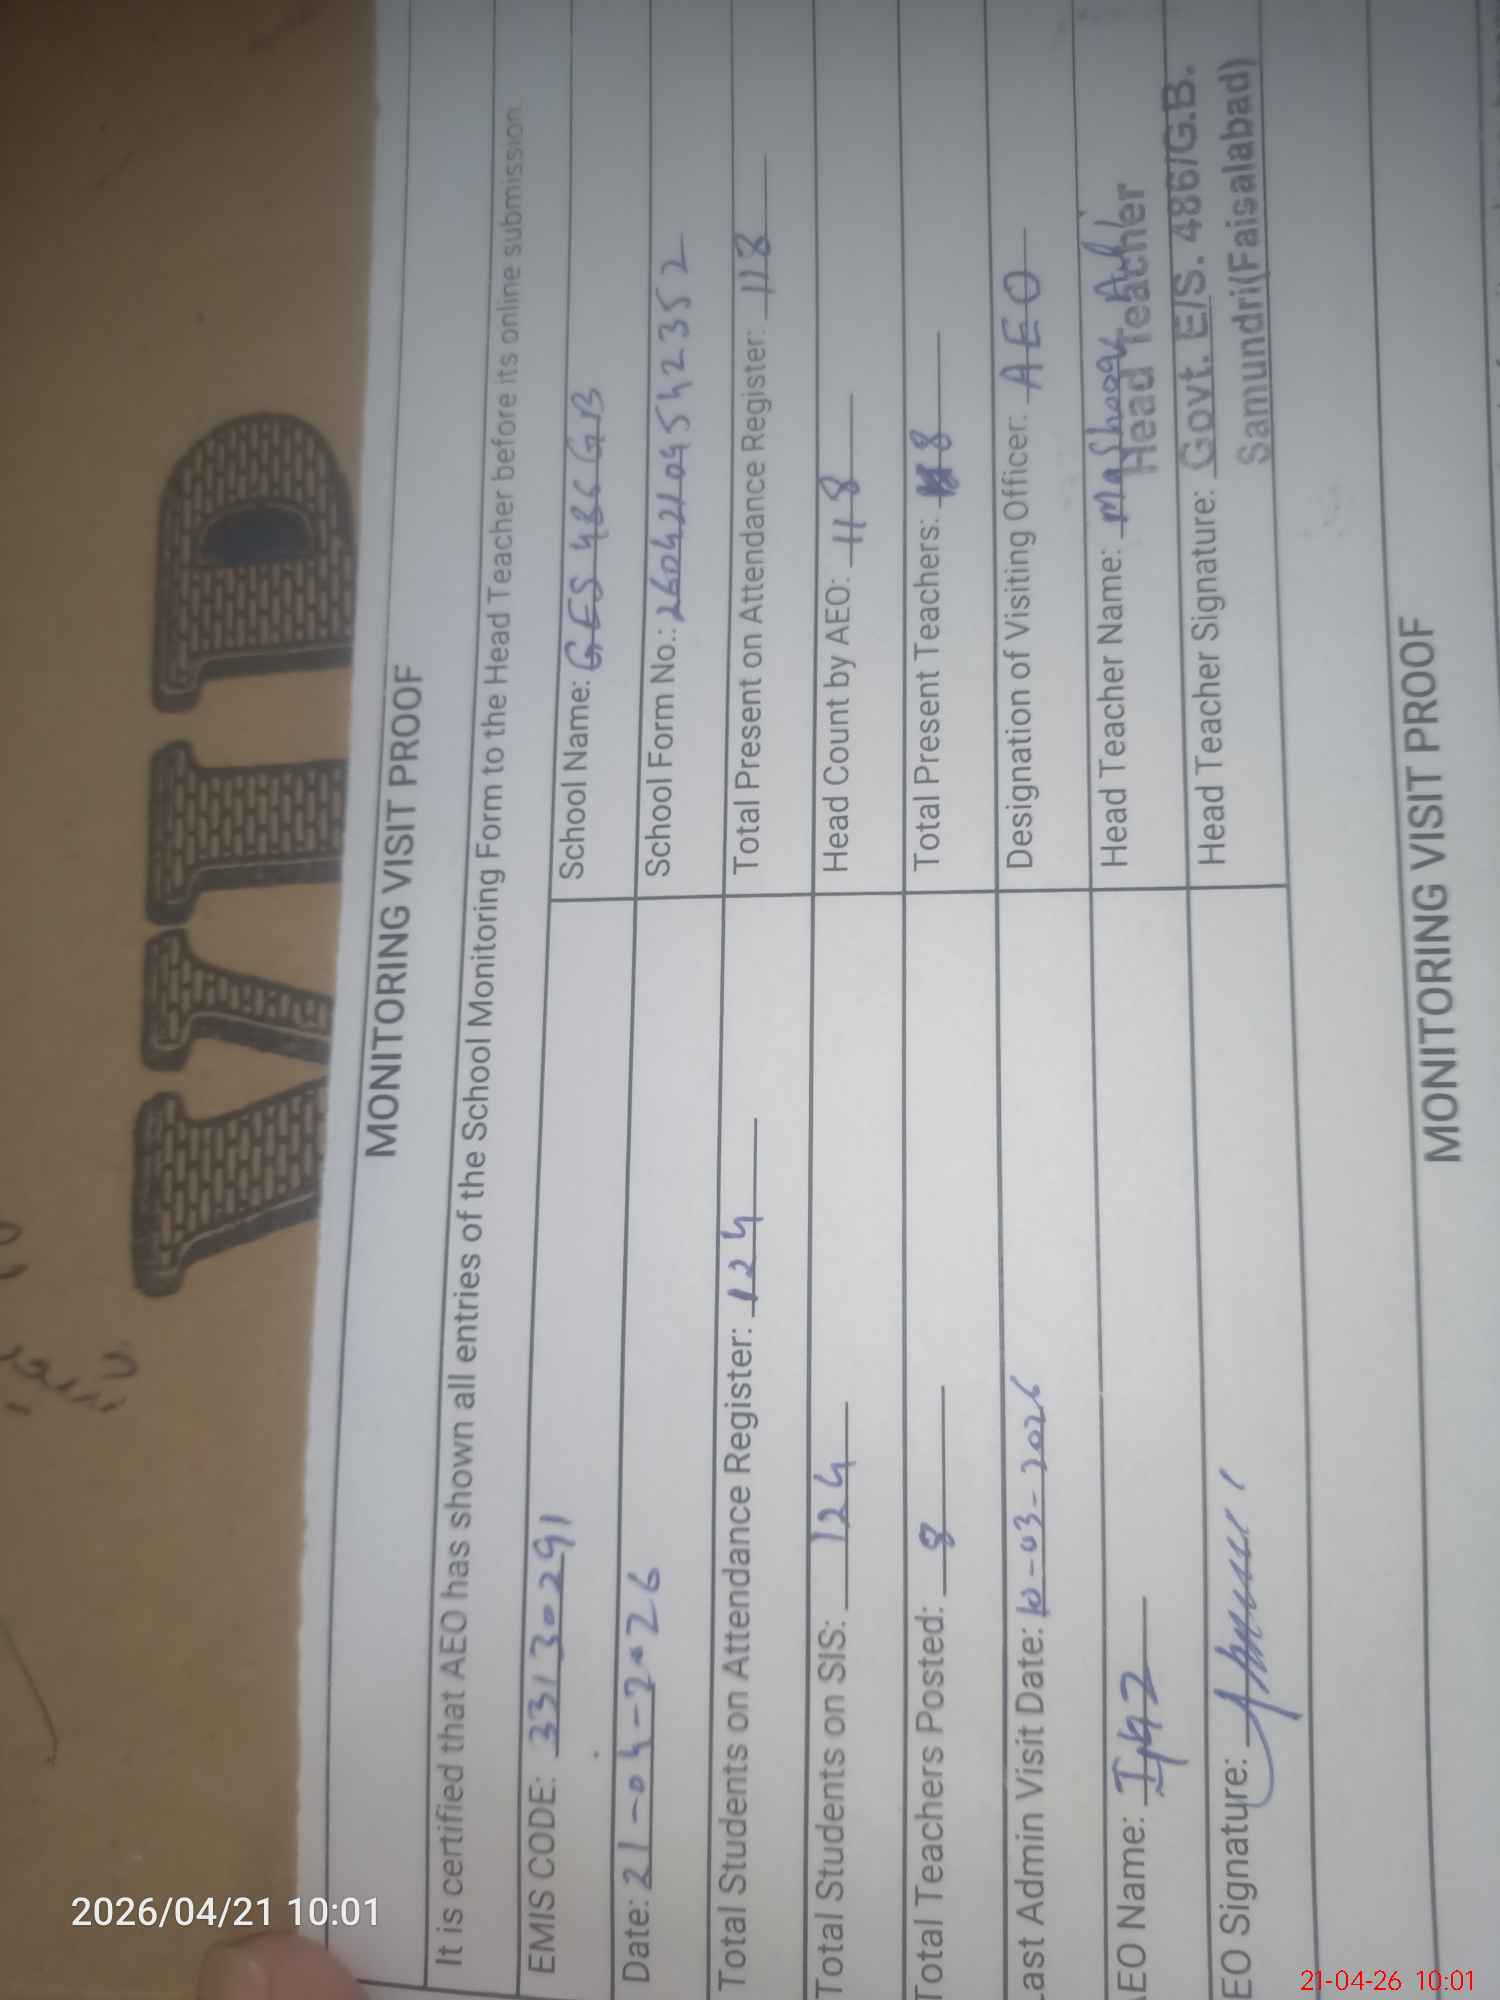 VIP
MONITORING VISIT PROOF
It is certified that AEO has shown all entries of the School Monitoring Form to the Head Teacher before its online submission.
EMIS CODE: 33130291
School Name: GES 486 GB
Date: 21-04-2026
School Form No.: 26042104542352
Total Students on Attendance Register: 124
Total Present on Attendance Register: 118
Total Students on SIS: 124
Head Count by AEO: 118
Total Teachers Posted: 8
Total Present Teachers: 8
Last Admin Visit Date: 10-03-2026
Designation of Visiting Officer: AEO
AEO Name:
Head Teacher Name: Mashooq Ali
Head Teacher
EO Signature:
Head Teacher Signature: Govt. E/S. 486/G.B.
Samundri(Faisalabad)
MONITORING VISIT PROOF
2026/04/21 10:01
21-04-26 10:01